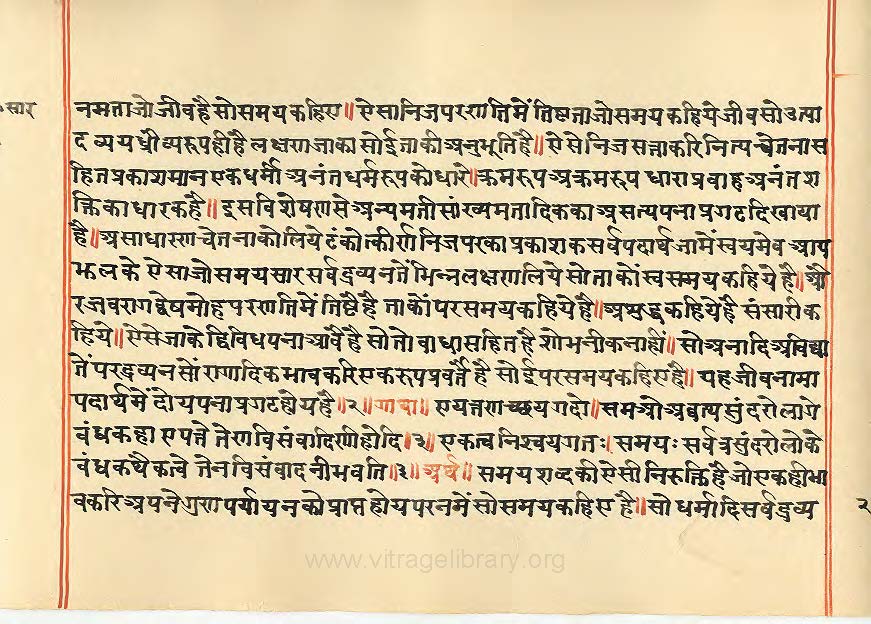 सार
नमताजोजीवहैसोसमयकहिए॥ऐसानिजपरणतिमेंतिष्ठताजोसमयकहियेजीवसोउत्पा
दव्ययध्रौव्यरूपहीहैलक्षणजाकासोईताकीअनुभूतिहै॥ऐसेनिजसत्ताकरिनित्यचेतनास
हितप्रकाशमानएकधर्मीअनंतधर्मरूपकोधारे॥क्रमरूपअक्रमरूपधाराप्रवाहअनंतश
क्तिकाधारकहै॥इसविशेषणसेअन्यमतीसांख्यमतादिककाअसत्यपनाप्रगटदिखाया
है॥असाधारणचेतनाकोलियेटंकोत्कीर्णनिजपरकाप्रकाशकसर्वपदार्थजामेंस्वयमेवआप
झलकेऐसाजोसमयसारसर्वद्रव्यनतेंभिन्नलक्षणलियेसोताकोंस्वसमयकहियेहै॥औ
रजवरागद्वेषमोहपरणतिमेंतिष्ठैहैताकोंपरसमयकहियेहै॥अशुद्धकहियेहैसंसारीक
हिये॥ऐसेजाकेद्विविधपनाआवैहैसोतोवाधासहितहैशोभनीकनाहीं॥सोअनादिअविद्या
तेंपरद्रव्यनसोंरागादिकभावकरिएकरूपप्रवर्तैहैसोईपरसमयकहिएहै॥यहजीवनामा
पदार्थमेंदोयपनाप्रगटहोयहै॥२॥गाथा॥एयत्तणिच्छयगदो॥समओसवत्थसुंदरोलोगे
वंधकहाएयत्तेतेणविसंवादिणीहोदि॥३॥एकत्वनिश्चयगतः।समयःसर्वत्रसुंदरोलोके
वंधकथैकत्वेतेनविसंवादनीभवति॥३॥अर्थ॥समयशब्दकीऐसीनिरुक्तिहैजोएकहीभा
वकरिअपनेगुणपर्यायनकोप्राप्तहोयपरनमेंसोसमयकहिएहै॥सोधर्मादिसर्वद्रव्य
२
www.vitragelibrary.org